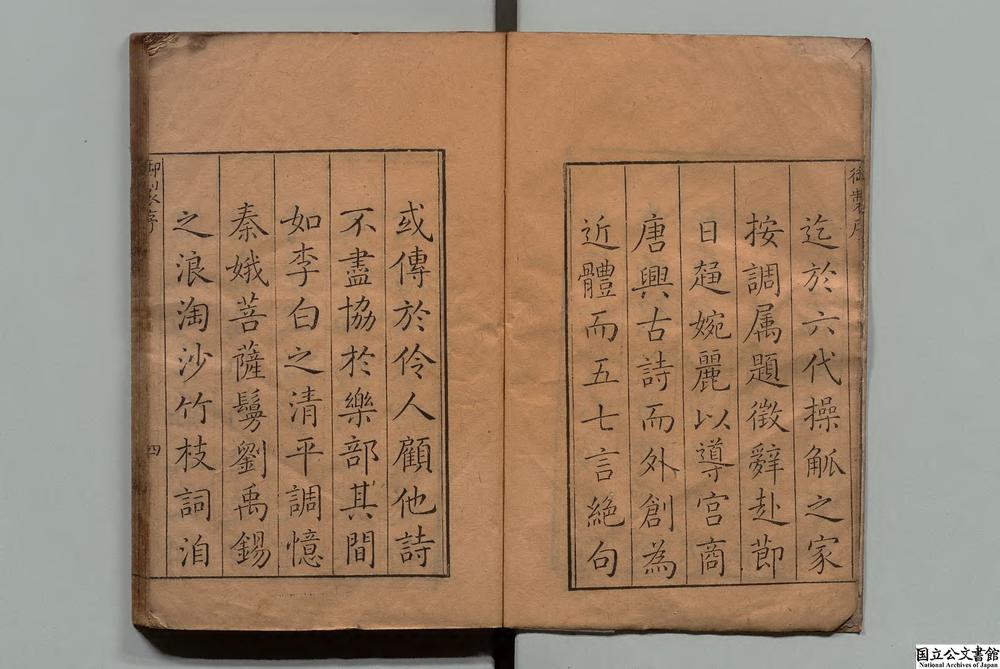 御製序
迄於六代操觚之家
按調属題徵辭赴節
日趨婉麗以導宮商
唐興古詩而外創為
近體而五七言絕句
或傳於伶人顧他詩
不盡協於樂部其間
如李白之清平調憶
秦娥菩薩鬘劉禹錫
之浪淘沙竹枝詞洎
御製序
四
国立公文書館
National Archives of Japan